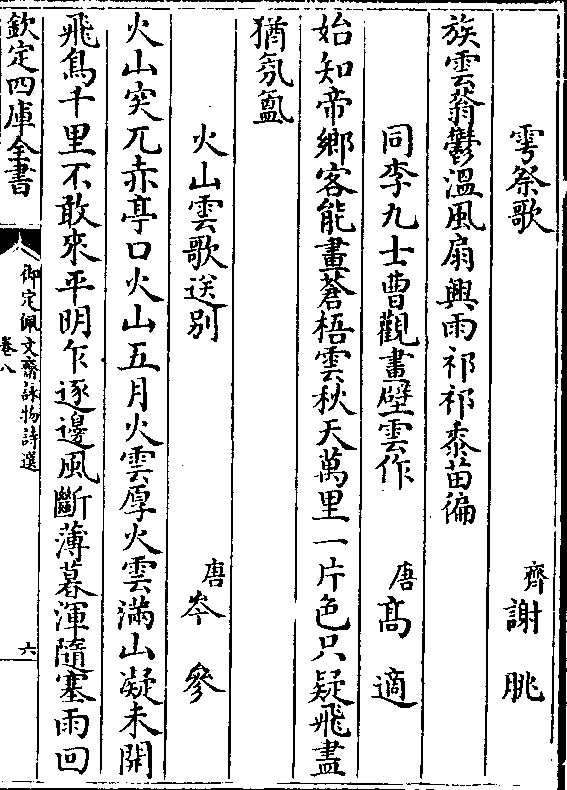 雩祭歌　齊謝朓
族雲蓊鬱溫風扇興雨祁祁黍苗徧
同李九士曹觀畫壁雲作　唐高適
始知帝鄉客能畫蒼梧雲秋天萬里一片色只疑飛盡
猶氛氳
火山雲歌送别　唐岑參
火山突兀赤亭口火山五月火雲厚火雲滿山凝未開
飛鳥千里不敢來平明乍逐邊風斷薄暮渾隨塞雨回
欽定四庫全書
御定佩文齋詠物詩選
卷八
六